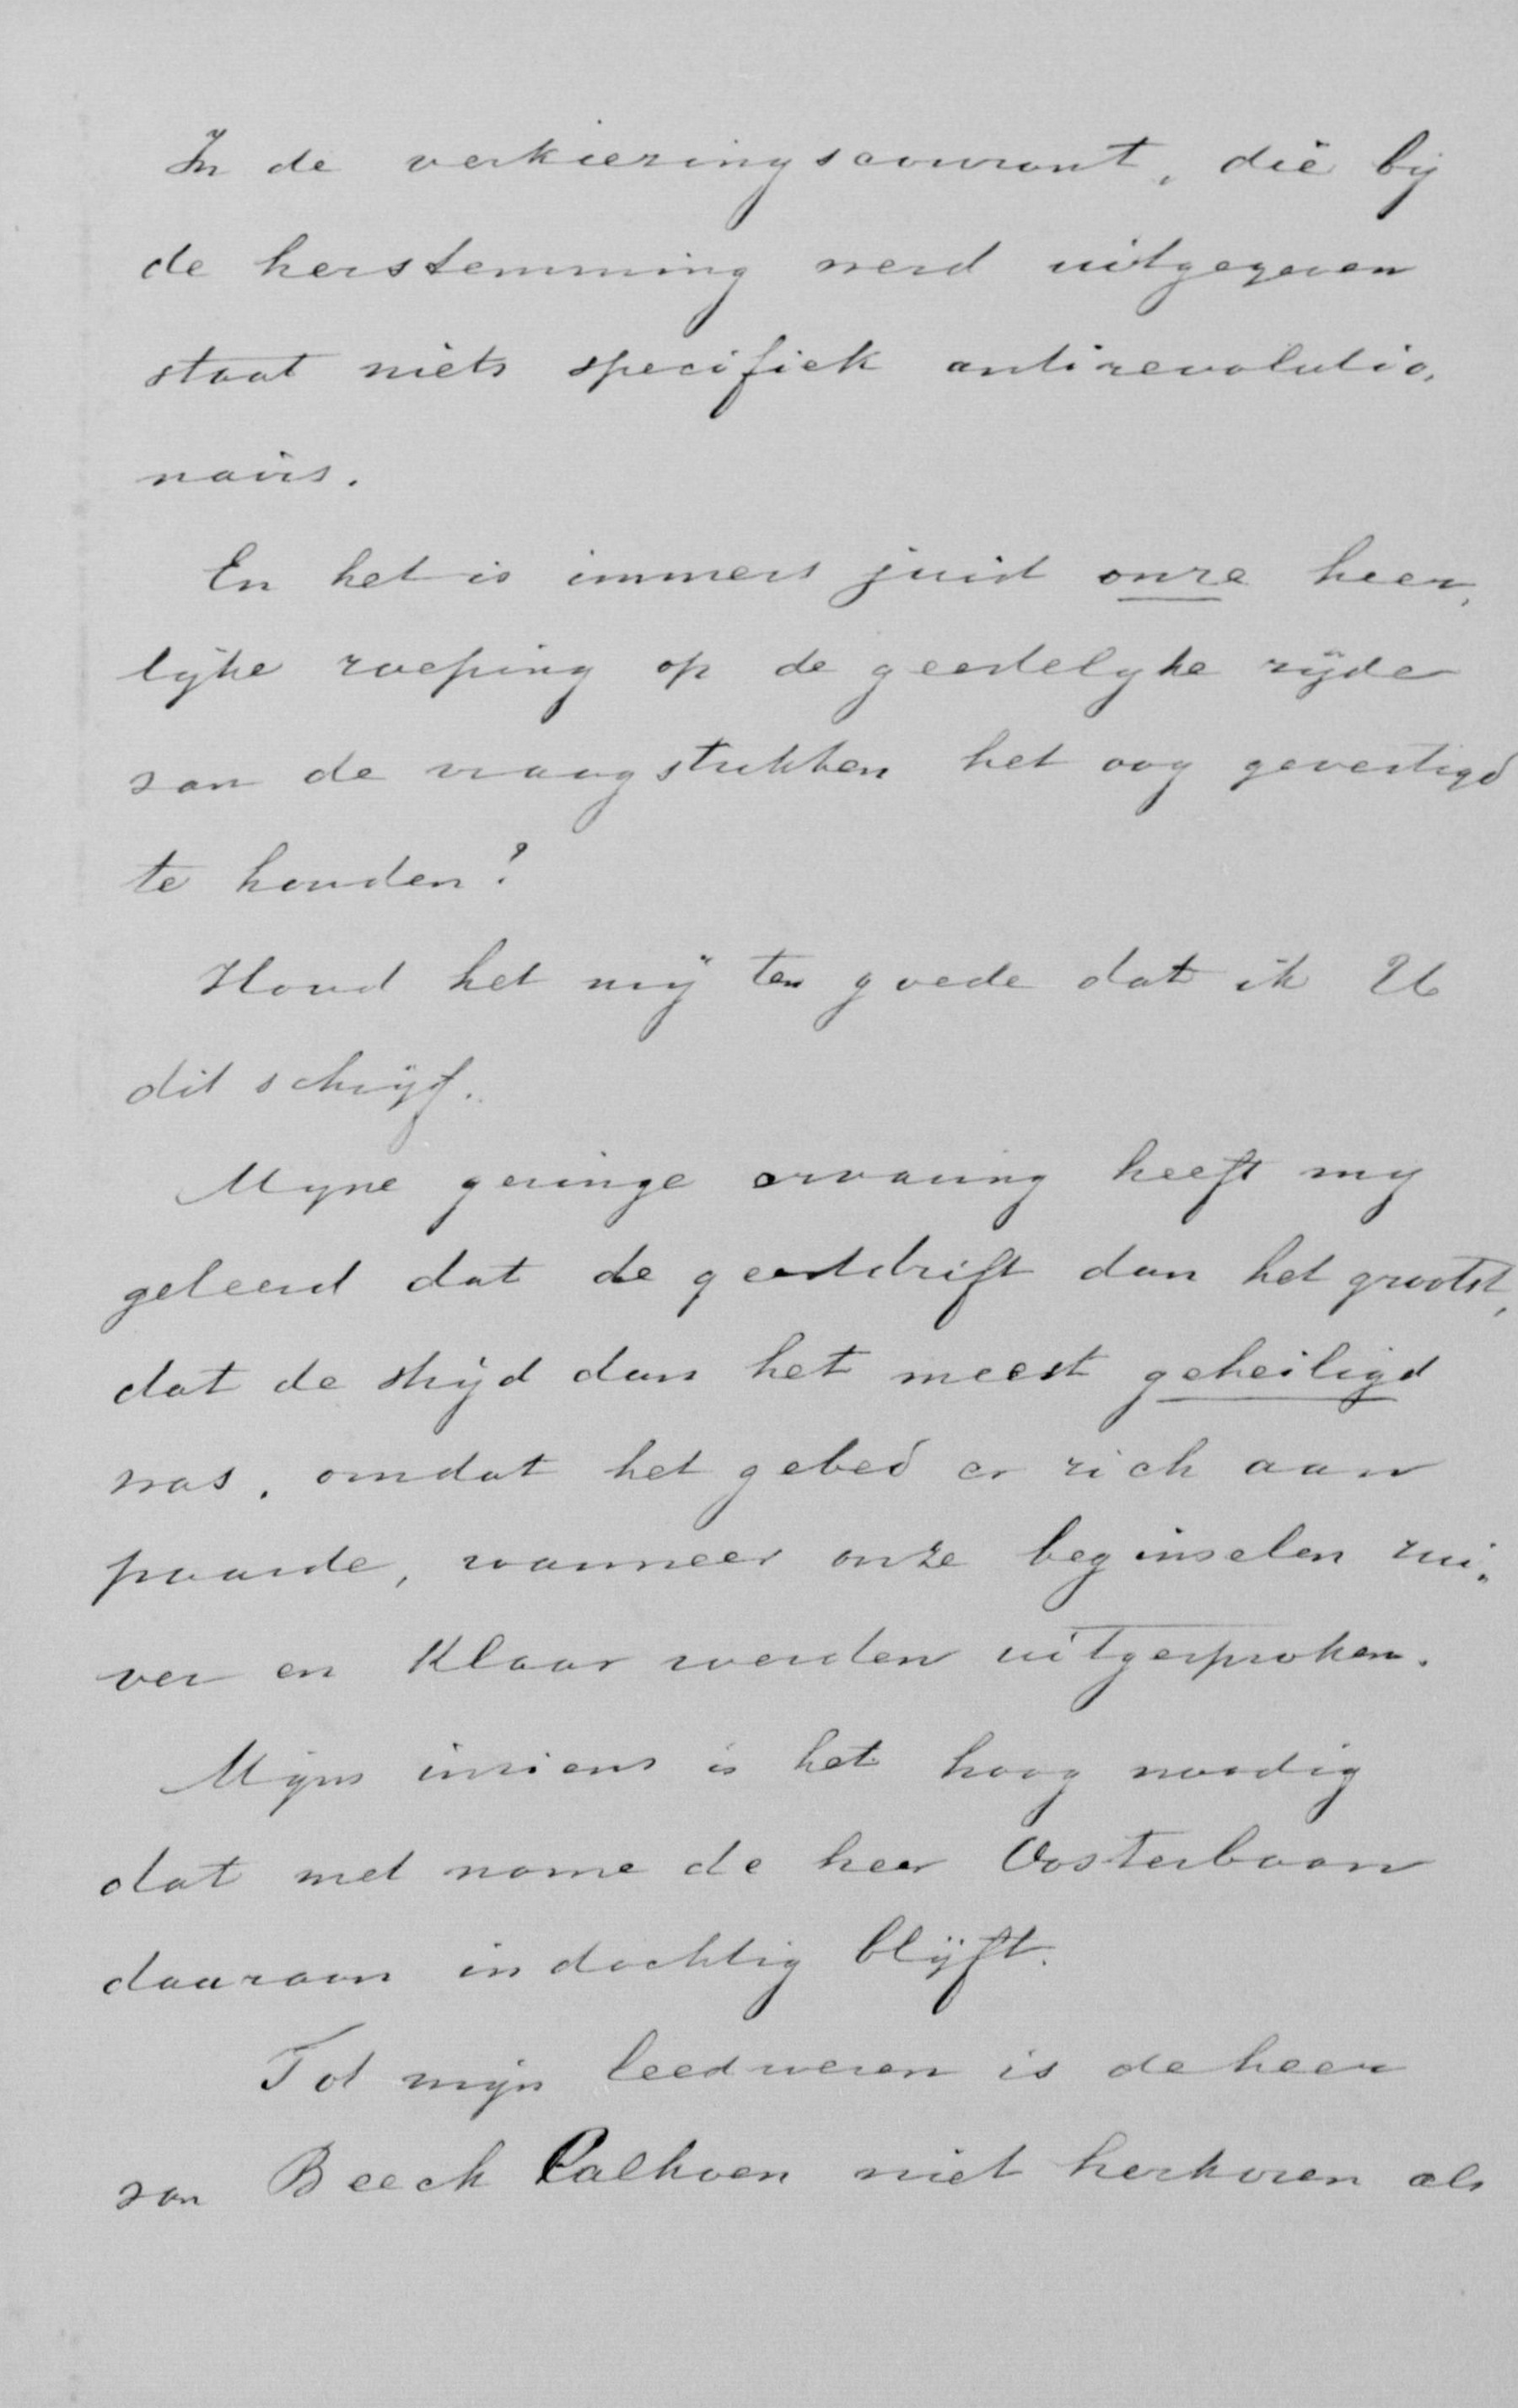 In de verkiezingscourant, die bij
de herstemming werd uitgegeven
staat niets specifiek antirevolutio„
nairs.
En het is immers juist onze heer„
lijke roeping op de geestelijke zijde
van de vraagstukken het oog gevestigd
te houden?
Houd het mij ten goede dat ik U
dit schrijf.
Mijne geringe ervaring heeft mij
geleerd dat de geestdrift dan het grootst,
dat de strijd dan het meest geheiligd
was, omdat het gebed er zich aan
paarde, wanneer onze beginselen zui„
ver en klaar werden uitgesproken.
Mijns inziens is het hoog noodig
dat met name de heer Oosterbaan
daaraan indachtig blijft.
Tot mijn leedwezen is de heer
van Beeck Calkoen niet herkozen als